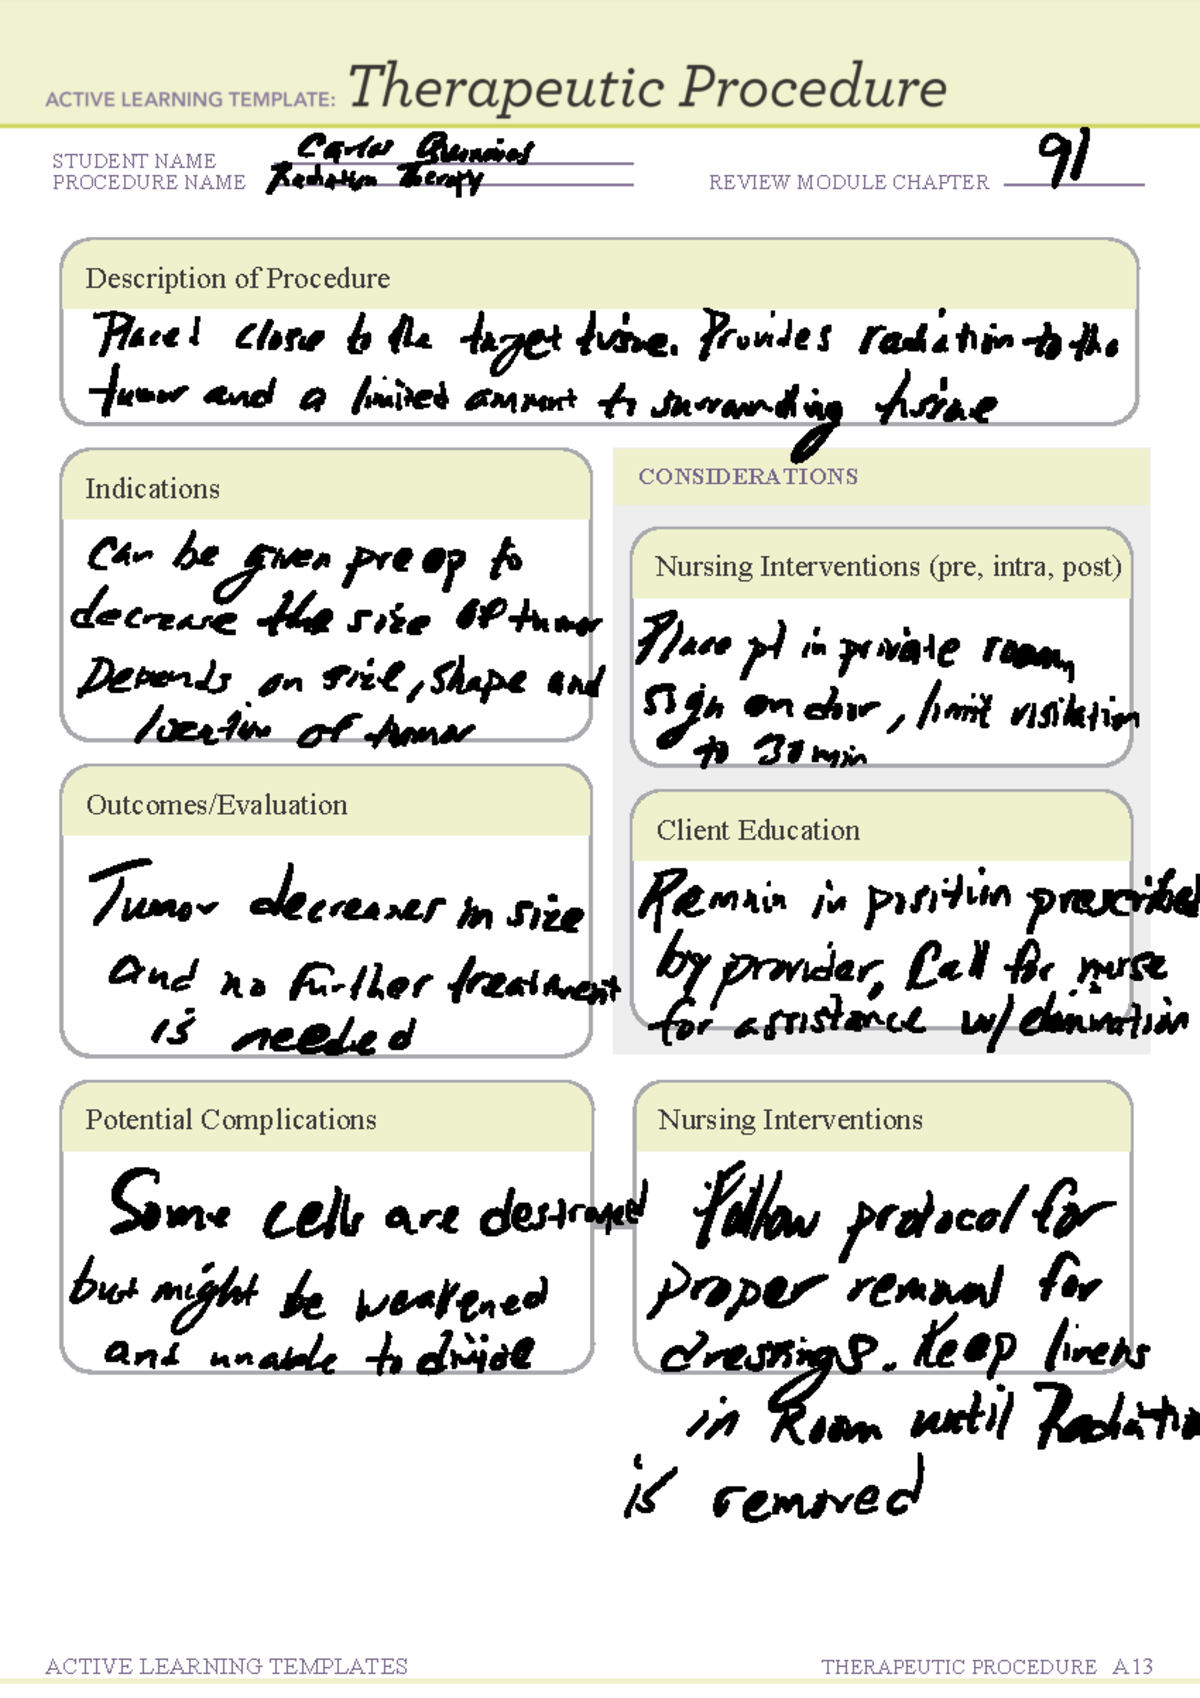 ACTIVE LEARNING TEMPLATE: Therapeutic Procedure
STUDENT NAME Carlos
PROCEDURE NAME Radiation Therapy
REVIEW MODULE CHAPTER 91
Description of Procedure
Placed close to the target tissue. Provides radiation to the
tumor and a limited amount to surrounding tissue
Indications
Can be given pre op to
decrease the size of tumor
Depends on size, shape and
location of tumor
CONSIDERATIONS
Nursing Interventions (pre, intra, post)
Place pt in private room,
sign on door, limit visitation
to 30 min
Outcomes/Evaluation
Tumor decreases in size
and no further treatment
is needed
Client Education
Remain in position prescribed
by provider, Call for nurse
for assistance w/ elimination
Potential Complications
Some cells are destroyed
but might be weakened
and unable to divide
Nursing Interventions
Follow protocol for
proper removal for
dressings. Keep linens
in Room until Radiation
is removed
ACTIVE LEARNING TEMPLATES
THERAPEUTIC PROCEDURE A13